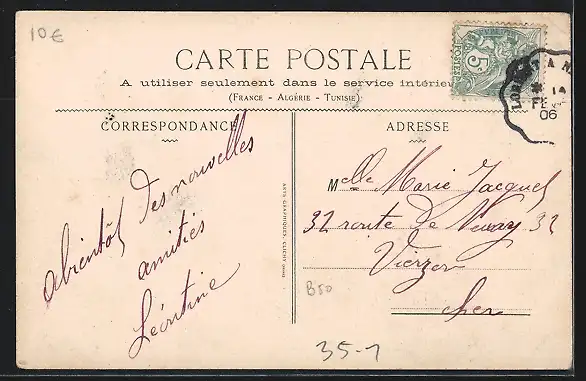 10€
CARTE POSTALE
A utiliser seulement dans le service intérieur
(FRANCE - ALGÉRIE - TUNISIE)
5c
POSTES
14
FE
06
CORRESPONDANCE
ADRESSE
abientôt des nouvelles
amitiés
Léontine
ARTS GRAPHIQUES, CLICHY
Melle Marie Jacquet
32 route de 32
Vierzon
Cher
B50
35-1